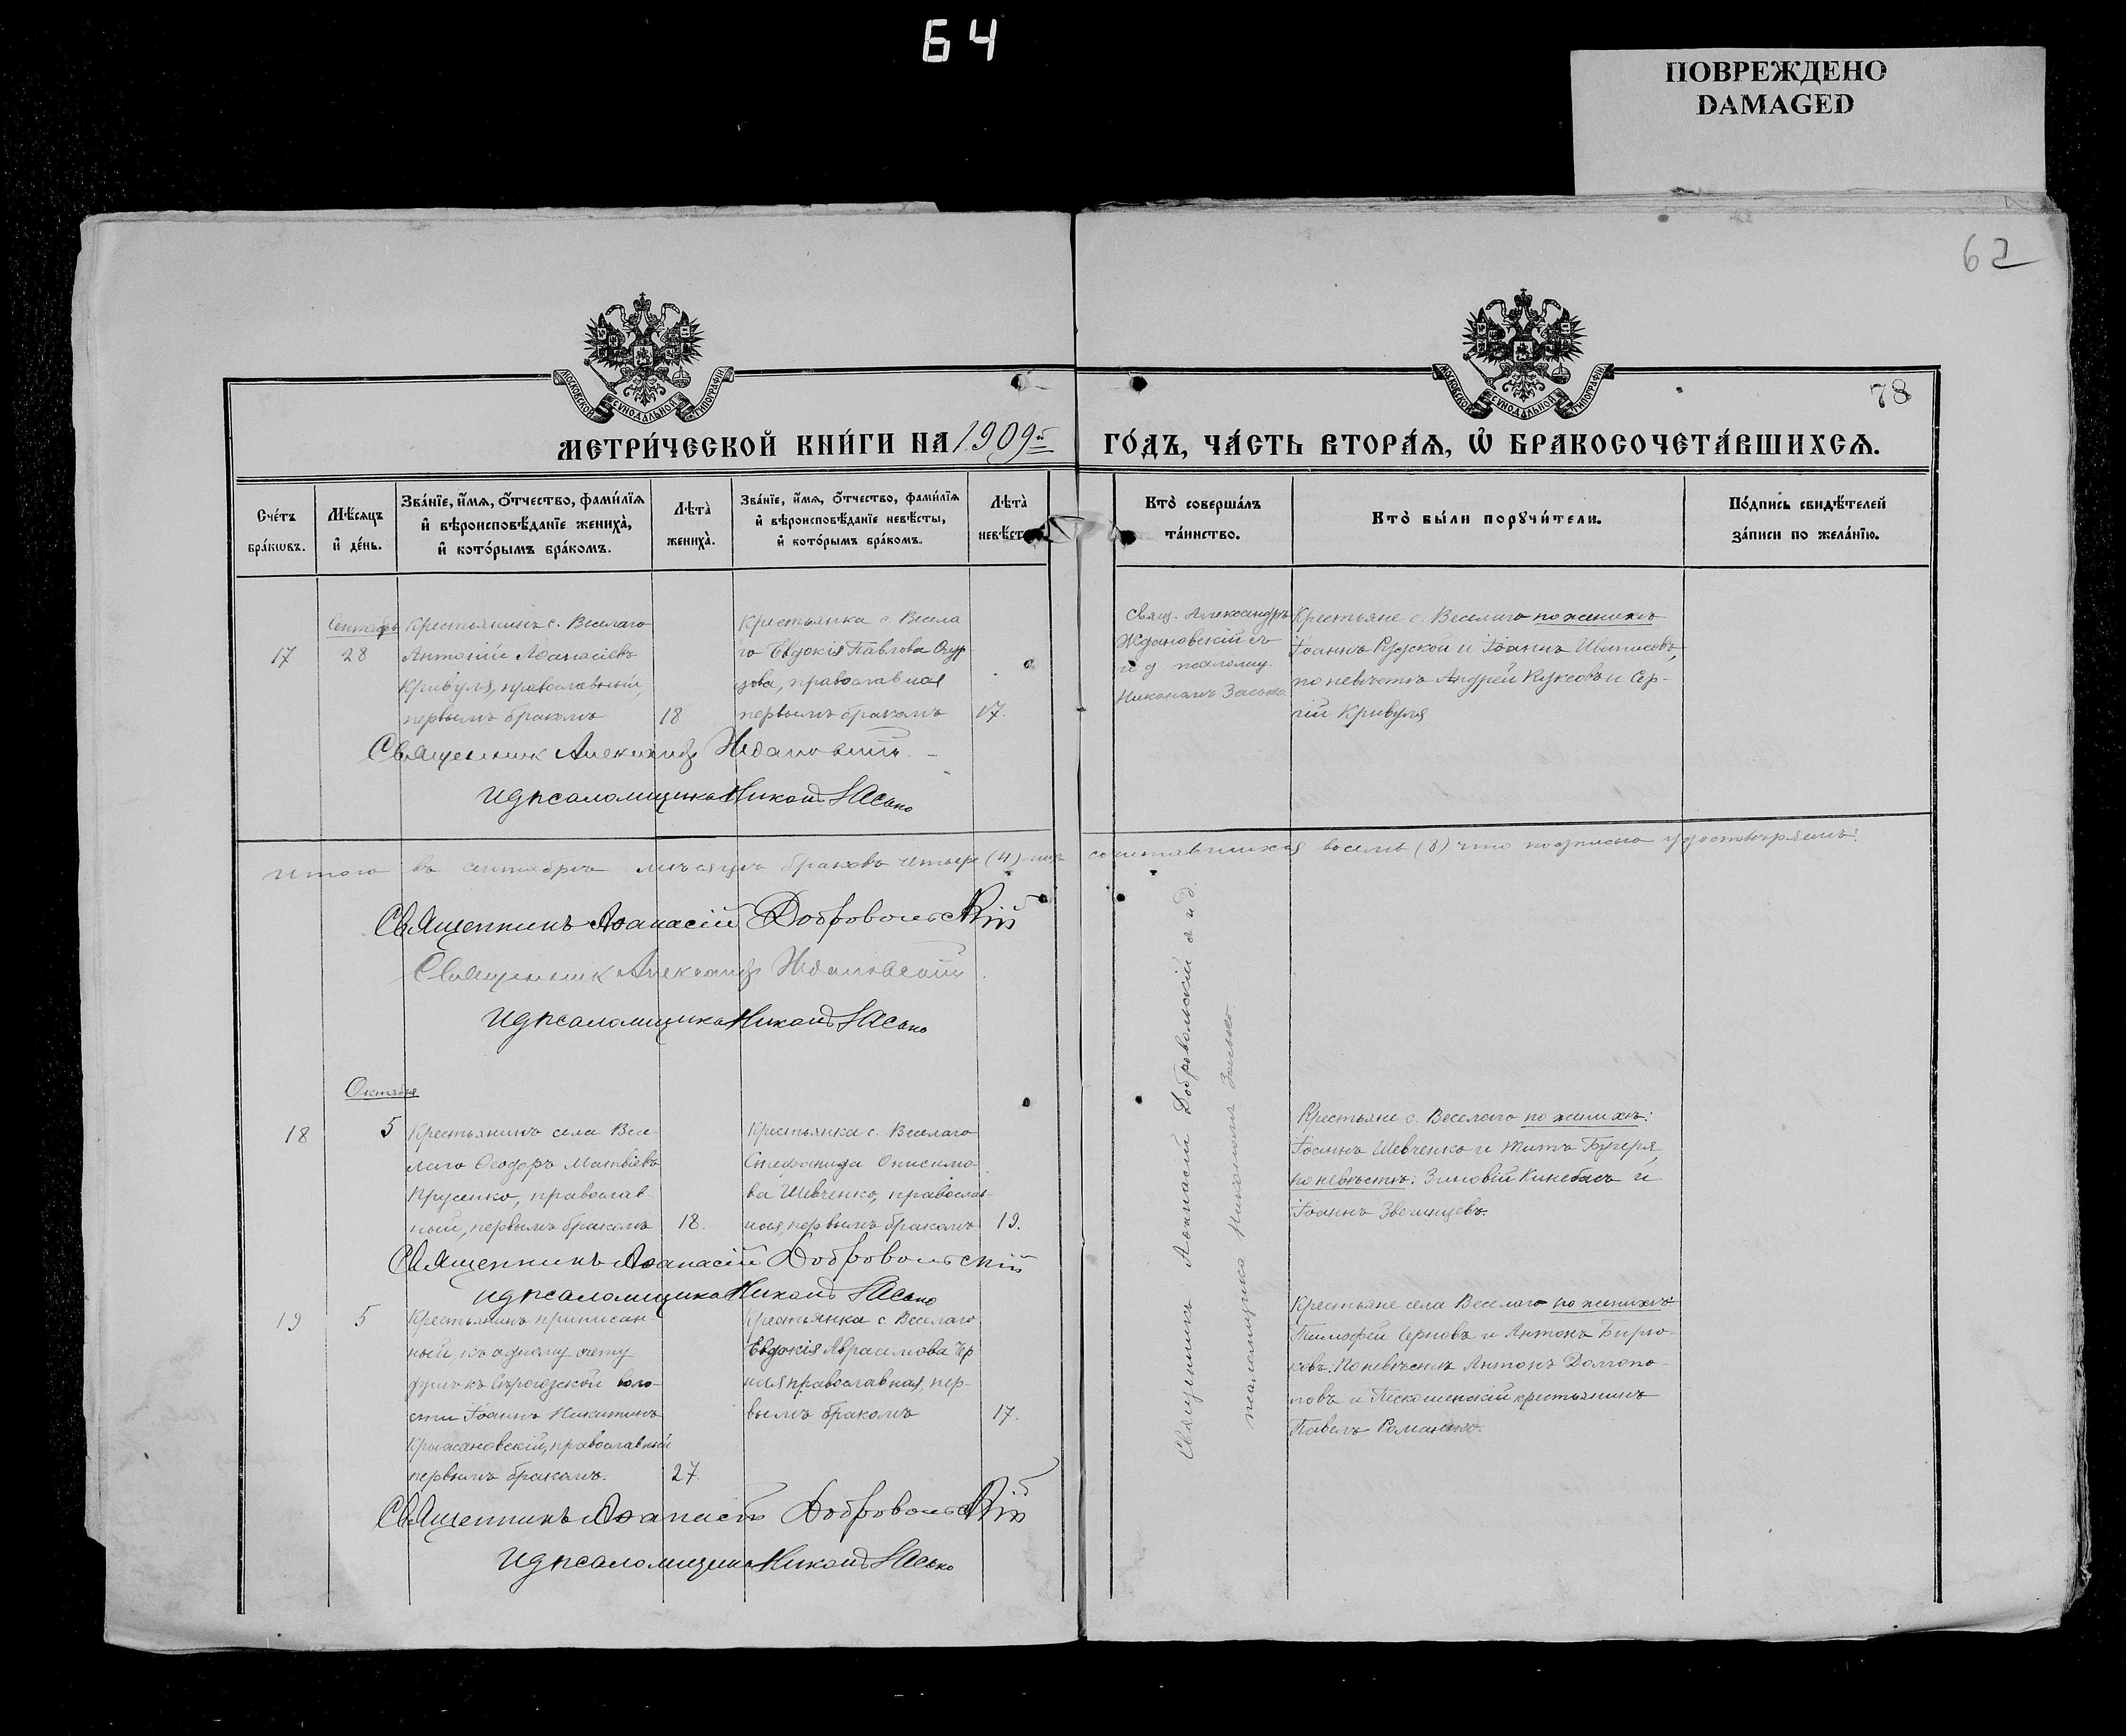 64
ПОВРЕЖДЕНО
DAMAGED
62
78
МОСКОВСКОЙ СѴНОДАЛЬНОЙ ТИПОГРАФІИ
МОСКОВСКОЙ СѴНОДАЛЬНОЙ ТИПОГРАФІИ
МЕТРИ́ЧЕСКОЙ КНИ́ГИ НА 1909й ГО́ДЪ, ЧА́СТЬ ВТОРА́Я, Ѡ БРАКОСОЧЕТА́ВШИХСЯ.
Сче́тъ
бра́кѡвъ.
Мѣ́сяцъ
и҆ де́нь.
Зва́нїе, и҆́мя, ѻ҆́тчество, фами́лїя
и҆ вѣроисповѣ́данїе жениха̀,
и҆ кото́рымъ бра́комъ.
Лѣта̀
жениха̀.
Зва́нїе, и҆́мя, ѻ҆́тчество, фами́лїя
и҆ вѣроисповѣ́данїе невѣ́сты,
и҆ кото́рымъ бра́комъ.
Лѣта̀
невѣ́ст
Кто̀ соверша́лъ
та́инство.
Кто̀ бы́ли порꙋчи́тели.
По́дпись свидѣ́телей
за́писи по жела́нїю.
17
Сентябрь
28
Крестьянинъ с. Веселаго
Антоній Аѳанасіевъ
Кривуля, православный,
первымъ бракомъ
18
Крестьянка с. Весела
го Евдокія Павлова Огур
цова, православная
первымъ бракомъ
17.
Свящ. Александръ
Ждановскій съ
и д псаломщ.
Никономъ Засько.
Крестьяне с. Веселаго по женихѣ
Іоаннъ Рудской и Іоаннъ
по невѣстѣ Андрей Куксовъ и Сер-
гій Кривуля
Священник Александр Ждановскій
ид псаломщика Никонъ Засько
Итого въ сентябрѣ мѣсяцѣ браковъ четыре (4) лицъ сочетавшихся восемь (8) что подписью удостовѣряемъ:
Священникъ Аѳанасій Добровольскій
Священник Александр Ждановскій
ид псаломщика Никонъ Засько
Октября
18
5
Крестьянинъ села Весе-
лаго Ѳеодоръ Матвіевъ
Прусенко, православ-
ный, первымъ бракомъ
18.
Крестьянка с. Веселаго
Стефанида Онисимо-
ва Шевченко, православ-
ная, первымъ бракомъ
19.
Священникъ Аѳанасій Добровольскій и д.
псаломщика Никономъ Засько.
Крестьяне с. Веселаго по женихѣ:
Іоаннъ Шевченко и Титъ Бугеря,
по невѣстѣ: Зиновій Кинебасъ и
Іоаннъ Звегинцевъ.
Священникъ Аѳанасій Добровольскій
ид псаломщика Никонъ Засько
19
5
Крестьянинъ приписан-
ный, къ одному счету
душъ къ Сѣрогозской воло-
сти Іоаннъ Никитинъ
Крыжановскій, православный
первымъ бракомъ.
27
Крестьянка с Веселаго
Евдокія Аврамова Чер
ная православная, пер-
вымъ бракомъ
17.
Крестьяне села Веселаго по женихѣ
Тимофей Черновъ и Антонъ Бирю-
ковъ. По невѣстѣ Антонъ Долгопо-
ловъ и крестьянинъ
Павелъ Романенко.
Священникъ Аѳанасій Добровольскій
ид псаломщика Никонъ Засько